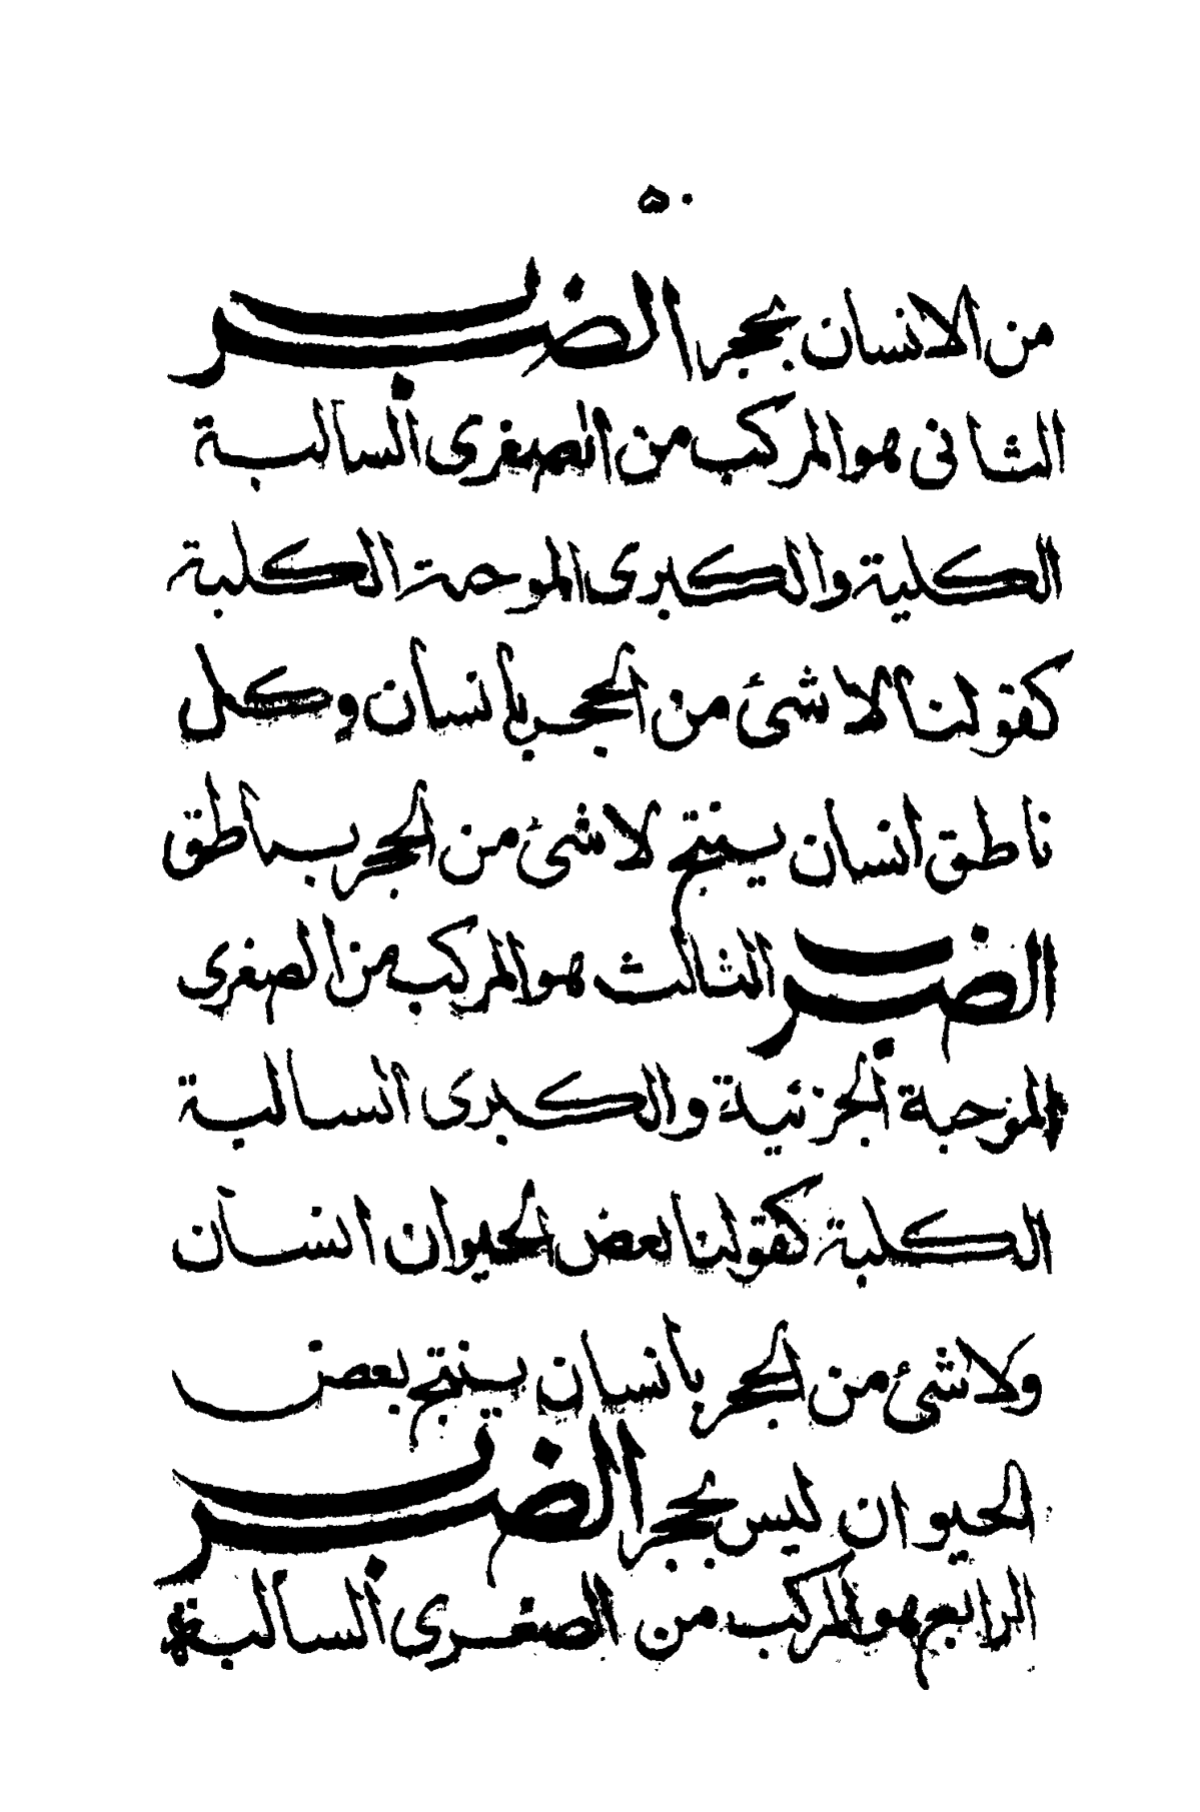 ٥٠
من الانسان بحجر الضرب
الثانى هو المركب من الصغرى السالبة
الكلية والكبرى الموجبة الكلية
كقولنا لا شئ من الحجر بانسان وكل
ناطق انسان ينتج لا شئ من الحجر بناطق
الضرب الثالث هو المركب من الصغرى
الموجبة الجزئية والكبرى السالبة
الكلية كقولنا بعض الحيوان انسان
ولا شئ من الحجر بانسان ينتج بعض
الحيوان ليس بحجر الضرب
الرابع هو المركب من الصغرى السالبة